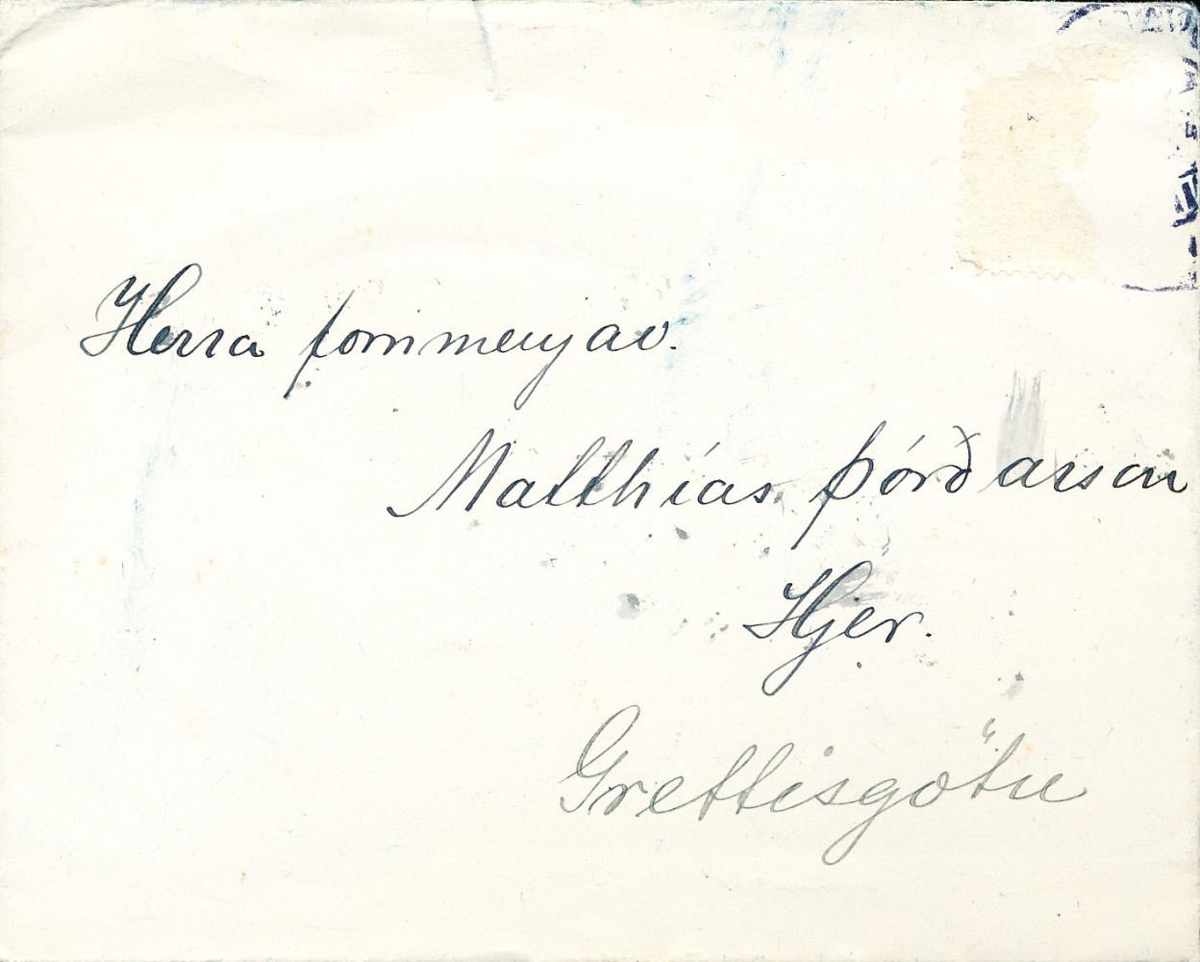 Herra fornmenjav.
Matthías Þórðarson
Hjer.
Grettisgötu